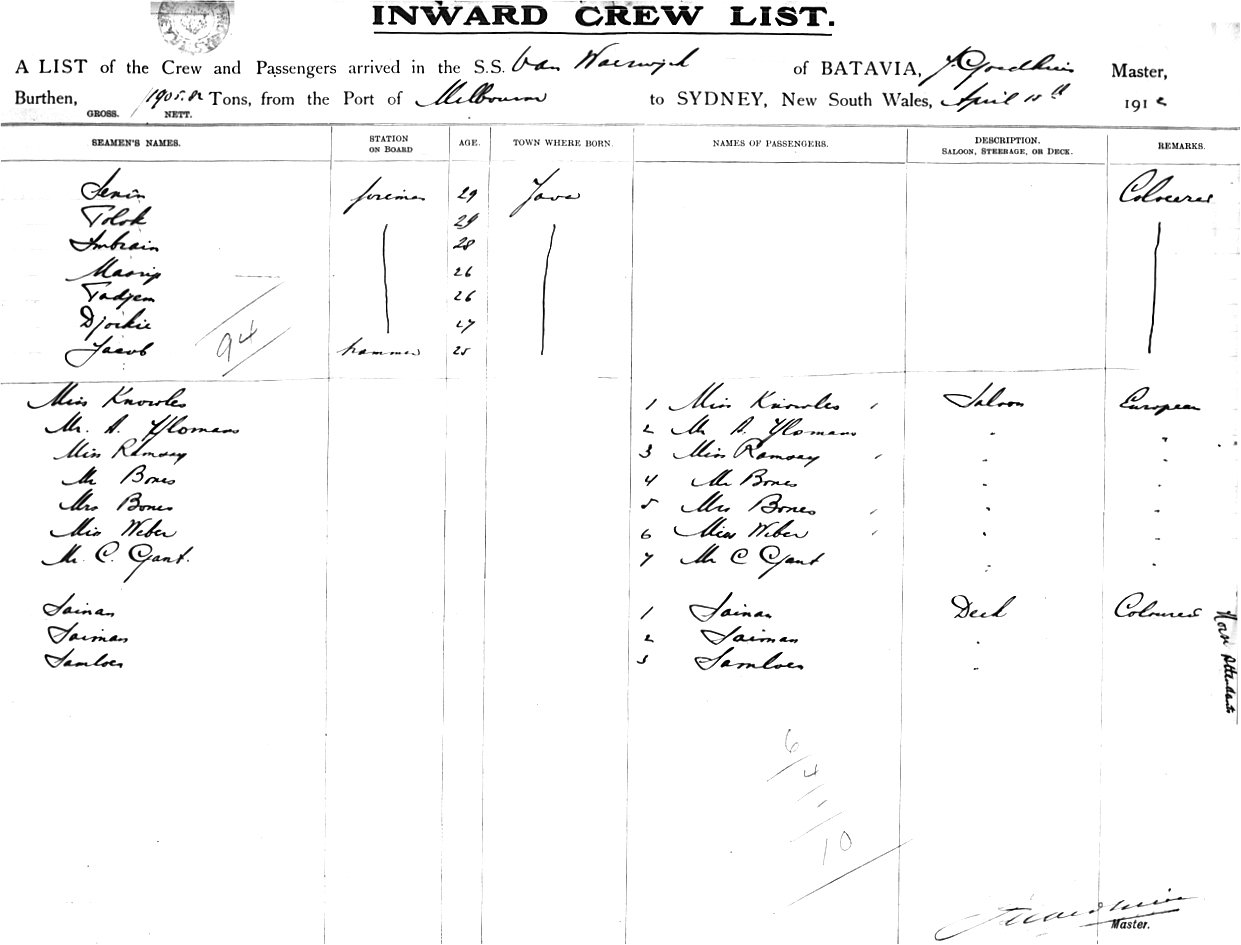 INWARD CREW LIST.
A LIST of the Crew and Passengers arrived in the S.S. Van Waerwijck of BATAVIA, Master,
Burthen, 1905.82 Tons, from the Port of Melbourne to SYDNEY, New South Wales, April 15th 1912
GROSS. NETT.
SEAMEN'S NAMES. STATION ON BOARD AGE. TOWN WHERE BORN. NAMES OF PASSENGERS. DESCRIPTION. SALOON, STEERAGE, OR DECK. REMARKS.
29 Java Coloured
Tolok 29
28
Masrip 26
Tadjem 26
Djoikie 27
Jacob 25
94
Miss Knowles 1 Miss Knowles Saloon European
Mr. A. Ylomans 2 Mr A Ylomans " "
Miss Ramsay 3 Miss Ramsay " "
Mr Bones 4 Mr Bones " "
Mrs Bones 5 Mrs Bones " "
Miss Weber 6 Miss Weber " "
Mr. C. Gant. 7 Mr C Gant " "
Sainan 1 Sainan Deck Coloured
Saiman 2 Saiman "
Samloen 3 Samloen "
Horse Attendants
6
4
10
Master.